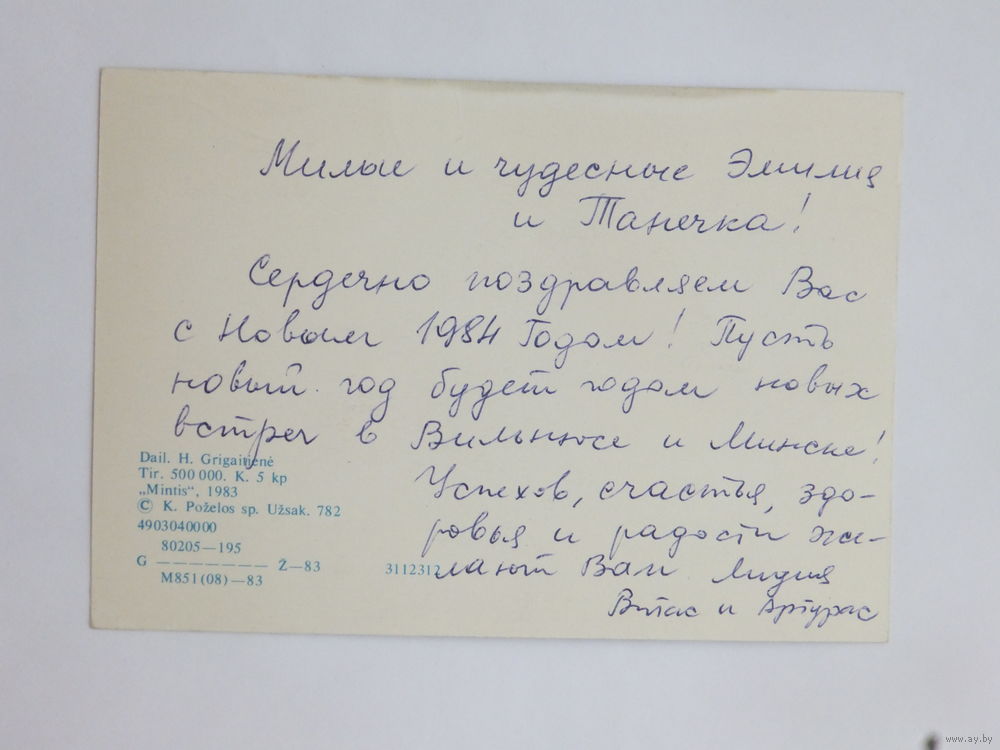 Милые и чудесные Эмилия
и Танечка!
Сердечно поздравляем Вас
с Новым 1984 Годом! Пусть
новый год будет годом новых
встреч в Вильнюсе и Минске!
Успехов, счастья, здо-
ровья и радости же-
лают Вам Лидия
Витас и Артурас
Dail. H. Grigaitienė
Tir. 500 000. K. 5 kp
„Mintis“, 1983
© K. Poželos sp. Užsak. 782
4903040000
80205—195
G — — — — — — — Ž—83
M851(08)—83
3112312
www.ay.by